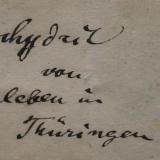 hydril
von
leben in
Thüringen